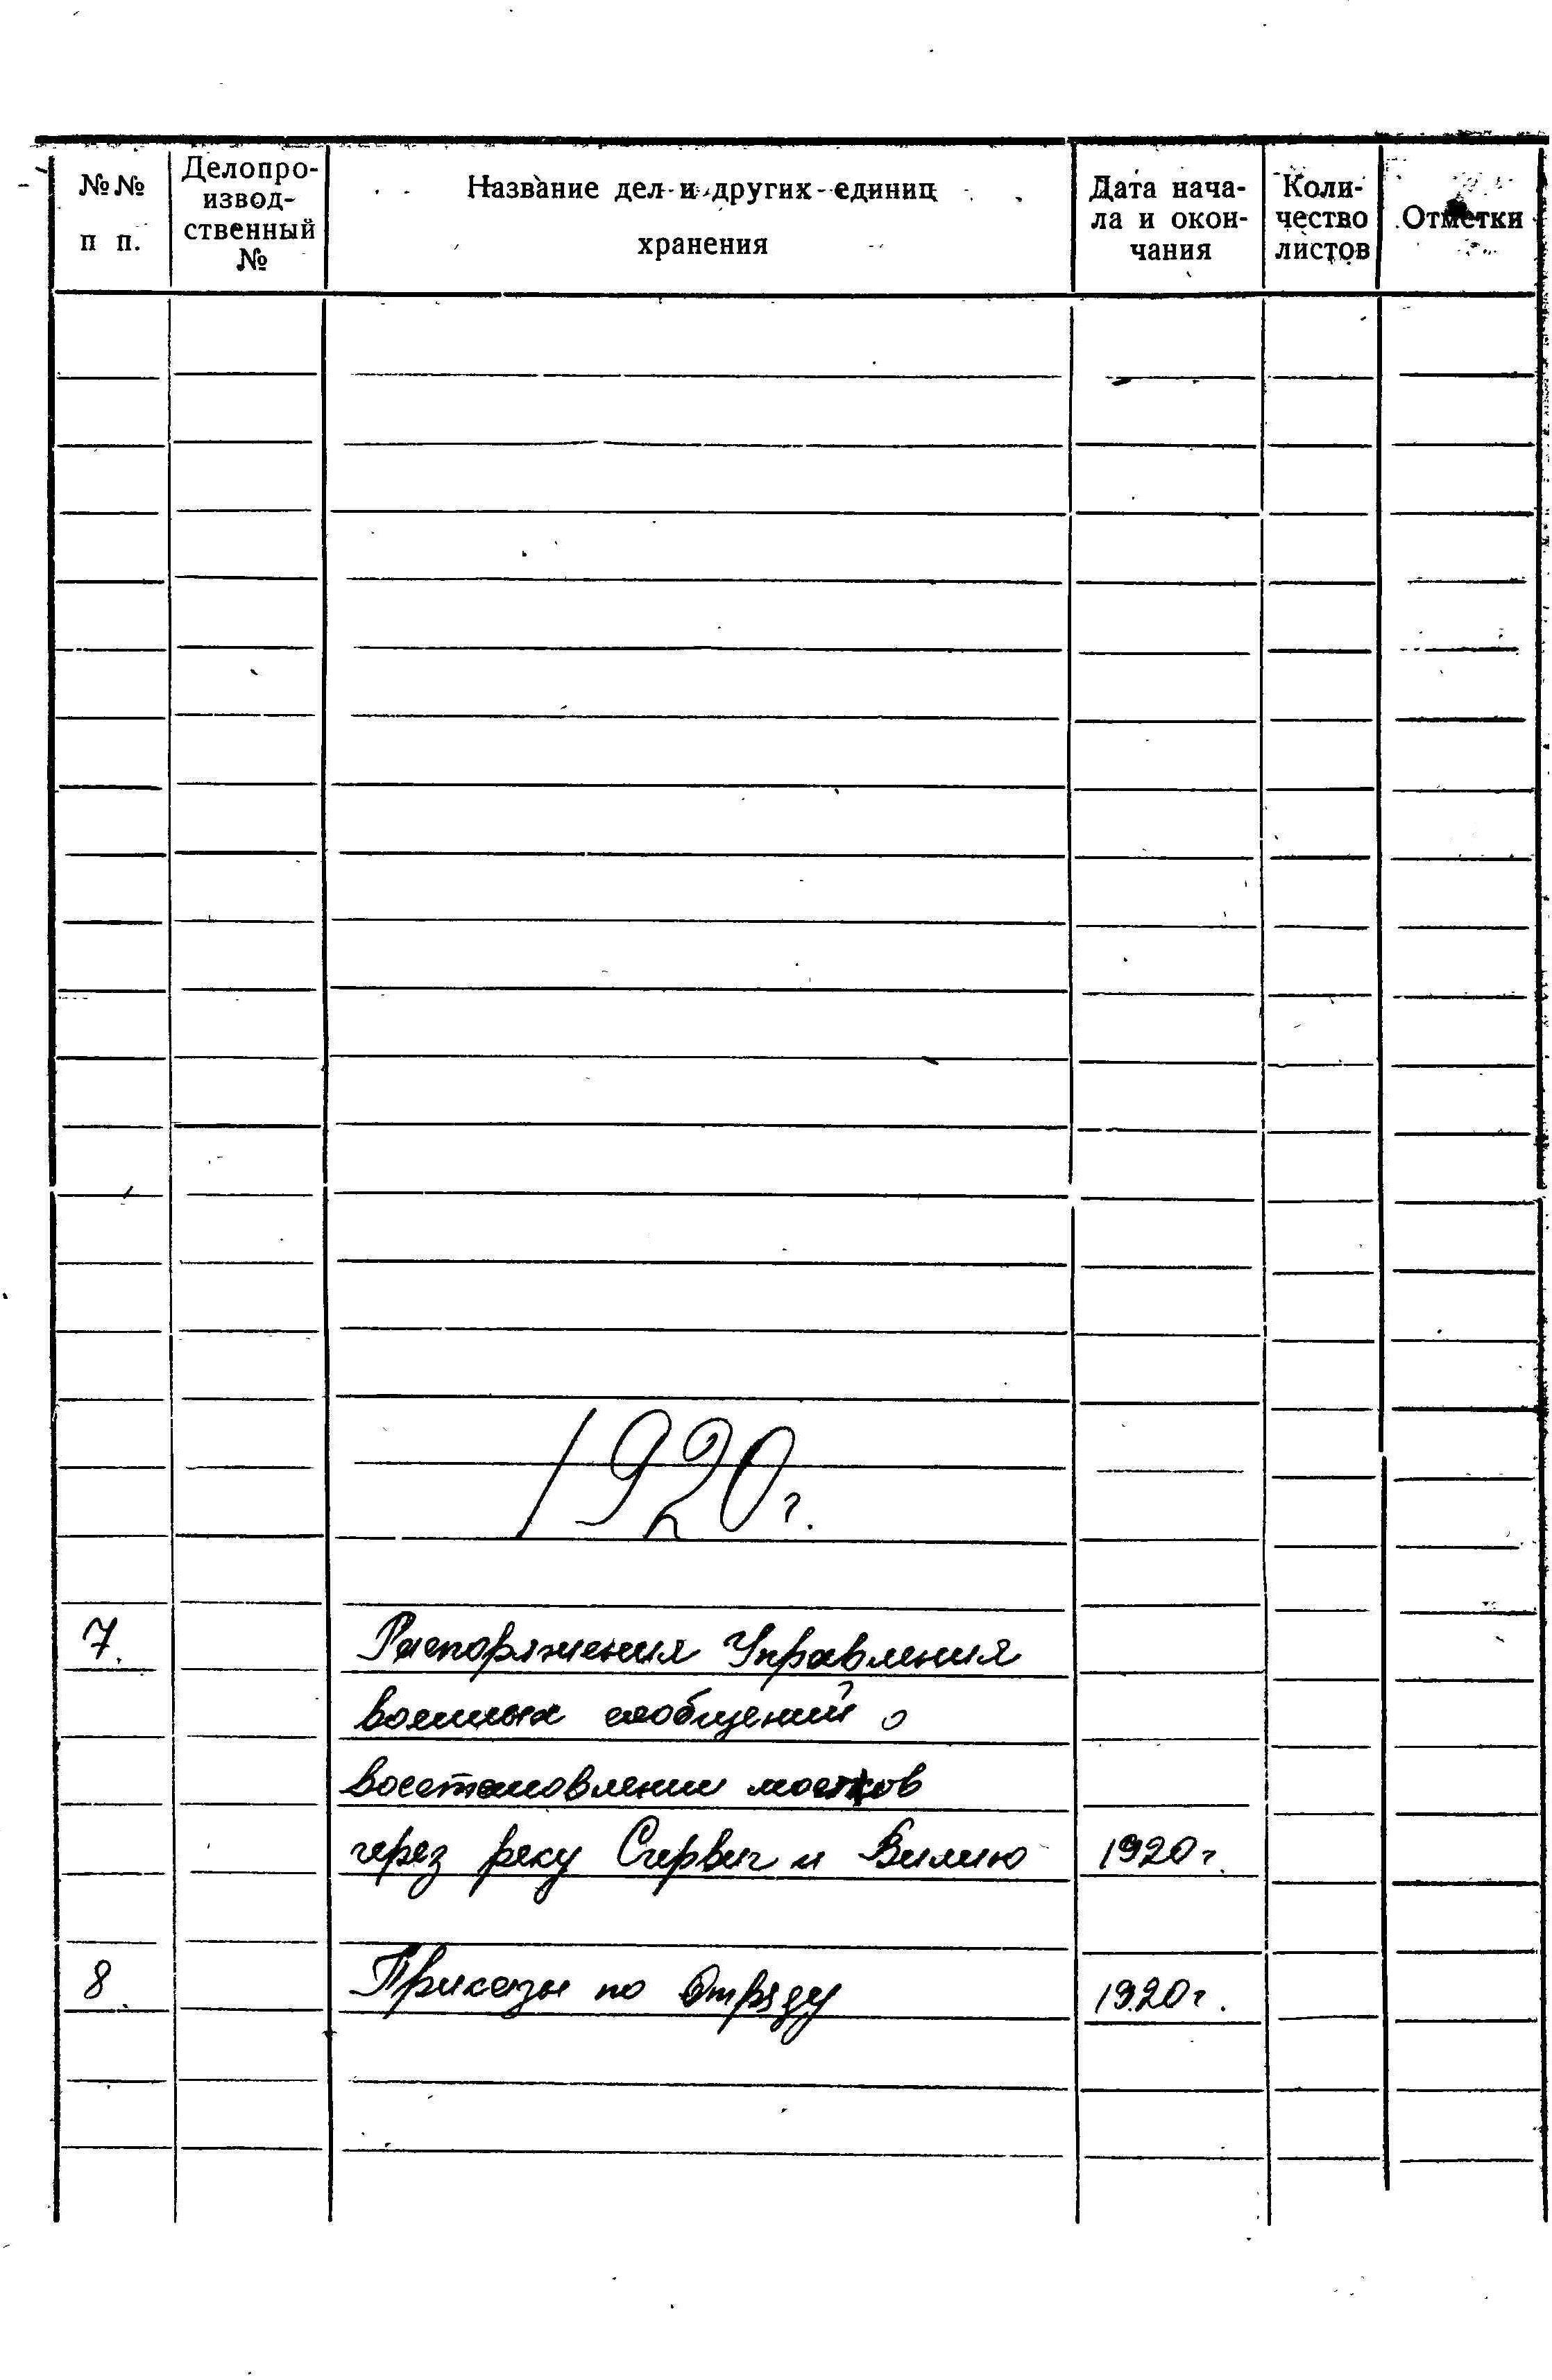 №№ п п.
Делопро-
извод-
ственный
№
Название дел и других единиц
хранения
Дата нача-
ла и окон-
чания
Коли-
чество
листов
Отметки
1920 г.
7. Распоряжения Управления
военных сообщений о
восстановлении мостов
через реку Сервеч и Вилию 1920 г.
8 Приказы по Отряду 1920 г.